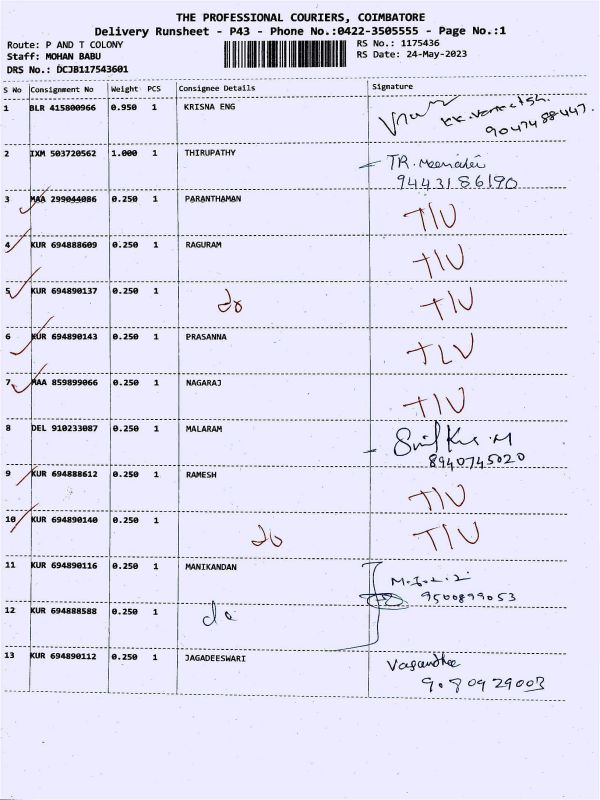 THE PROFESSIONAL COURIERS, COIMBATORE
Delivery Runsheet - P43 - Phone No.:0422-3505555 - Page No.:1
Route: P AND T COLONY
RS No.: 1175436
Staff: MOHAN BABU
RS Date: 24-May-2023
DRS No.: DCJB117543601
S No Consignment No Weight PCS Consignee Details Signature
1 BLR 415800966 0.950 1 KRISNA ENG
2 IXM 503720562 1.000 1 THIRUPATHY TR.
9443186190
3 MAA 299044086 0.250 1 PARANTHAMAN TIU
4 KUR 694888609 0.250 1 RAGURAM TIU
5 KUR 694890137 0.250 1 do TIU
6 KUR 694890143 0.250 1 PRASANNA TLV
7 MAA 859899066 0.250 1 NAGARAJ TIU
8 DEL 910233087 0.250 1 MALARAM
8940745020
9 KUR 694888612 0.250 1 RAMESH TIU
10 KUR 694890140 0.250 1 do TIU
11 KUR 694890116 0.250 1 MANIKANDAN
9500899053
12 KUR 694888588 0.250 1 do
13 KUR 694890112 0.250 1 JAGADEESWARI Vasantha